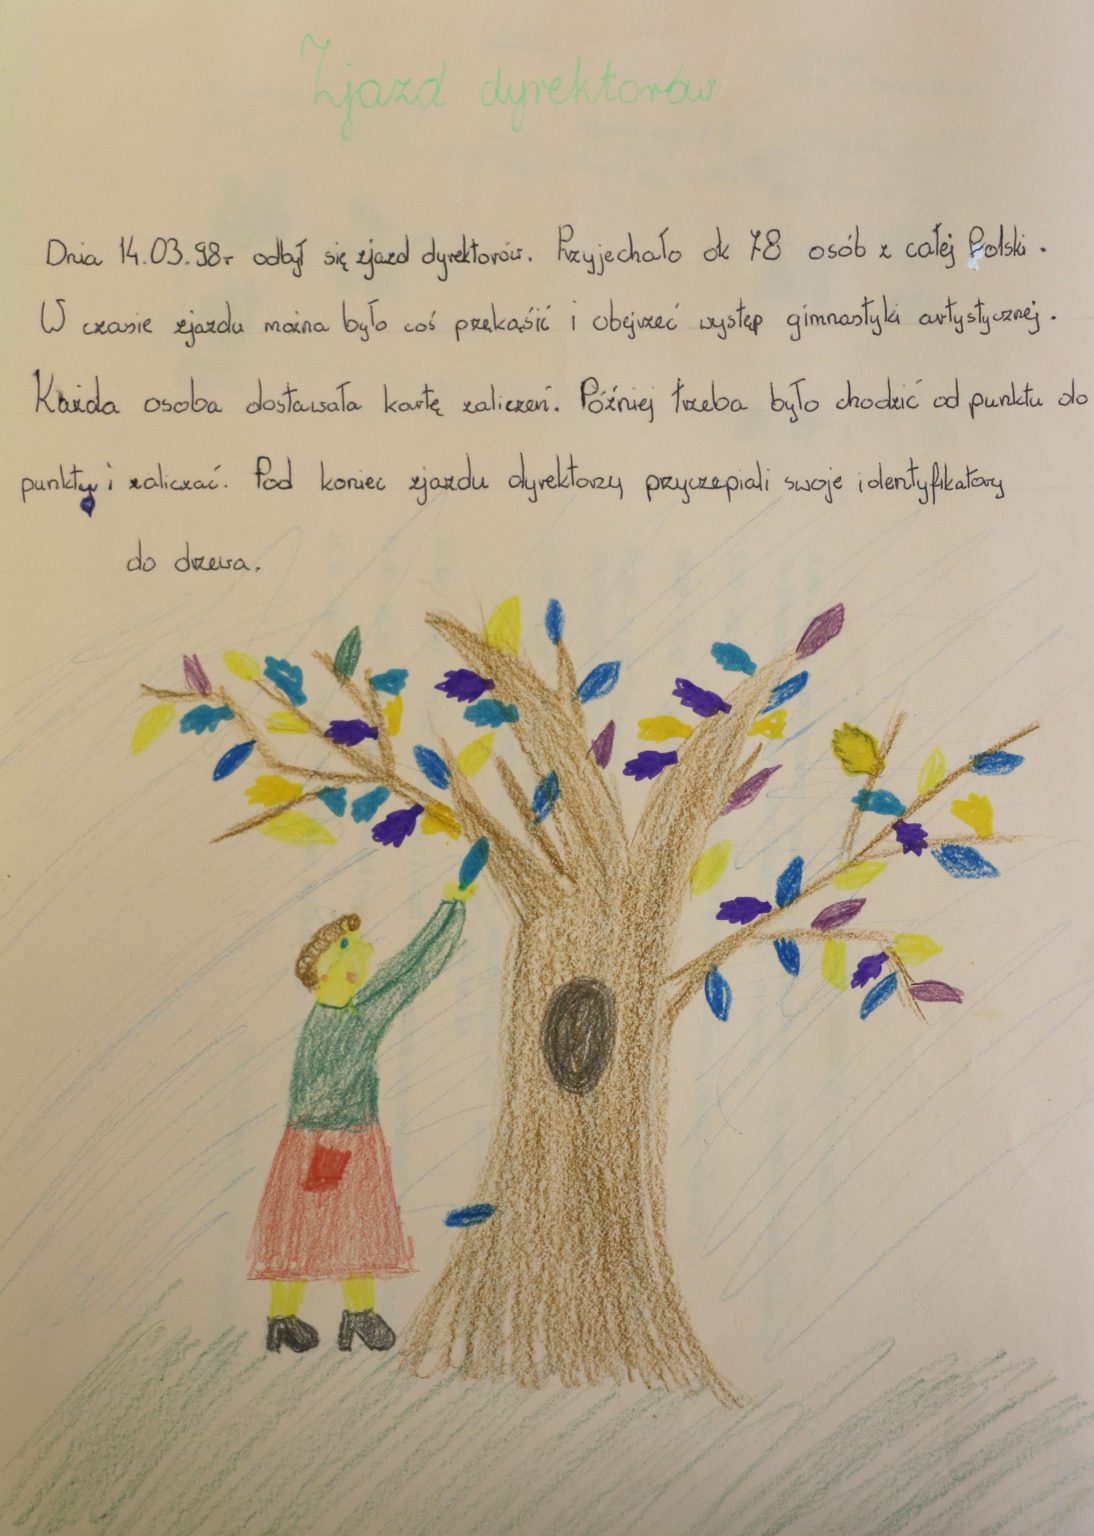 Zjazd dyrektorów
Dnia 14.03.98r odbył się zjazd dyrektorów. Przyjechało ok 78 osób z całej Polski.
W czasie zjazdu można było coś przekąsić i obejrzeć występ gimnastyki artystycznej.
Każda osoba dostawała kartę zaliczeń. Później trzeba było chodzić od punktu do
punktu i zaliczać. Pod koniec zjazdu dyrektorzy przyczepiali swoje identyfikatory
do drzewa.